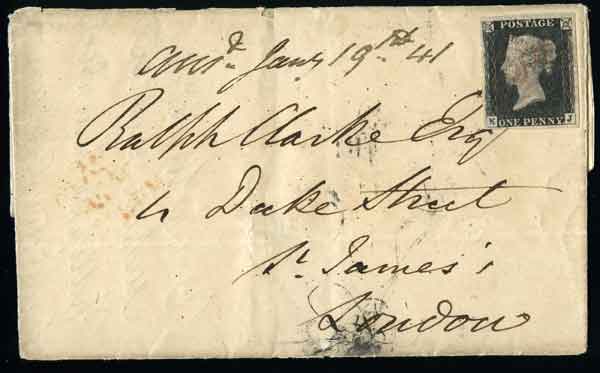 POSTAGE
ansd. Jany 19th 41
Ralph Clarke Esq
ONE PENNY
J
Duke Street
St. James's
London